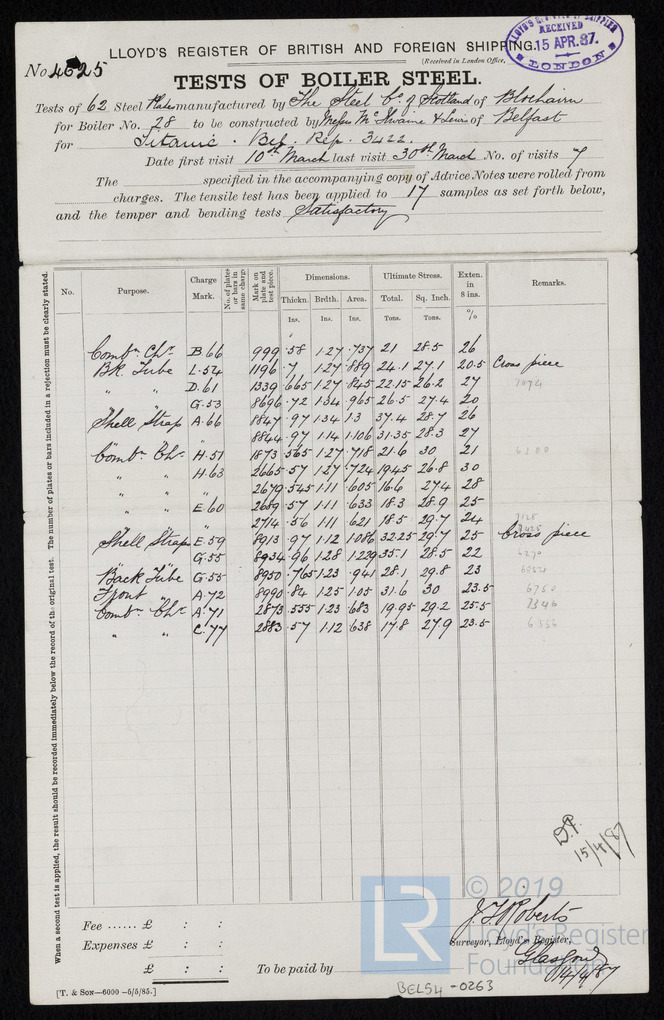 LLOYD'S REGISTER OF BRITISH AND FOREIGN SHIPPING.
No. 4525
(Received in London Office,
RECEIVED
15 APR. 87.
LONDON
TESTS OF BOILER STEEL.
Tests of 62 Steel Plates manufactured by The Steel Co. of Scotland of Blochairn
for Boiler No. 28 to be constructed by Messrs McIlwaine & Lewis of Belfast
for Titanic. Bel. Rep. 3422.
Date first visit 10th March last visit 30th March No. of visits 7
The specified in the accompanying copy of Advice Notes were rolled from
charges. The tensile test has been applied to 17 samples as set forth below,
and the temper and bending tests Satisfactory
When a second test is applied, the result should be recorded immediately below the record of the original test. The number of plates or bars included in a rejection must be clearly stated.
No. Purpose. Charge Mark. No. of plates or bars in same charge. Mark on plate and test piece. Dimensions. Ultimate Stress. Exten. in 8 ins. Remarks.
Thickn. Brdth. Area. Total. Sq. Inch.
Ins. Ins. Ins. Tons. Tons. %
Combn. Chr. B.66 999 .58 1.27 .737 21 28.5 26
Bk. Tube L.54 1196 .7 1.27 .889 24.1 27.1 20.5 Cross piece
" " D.61 1339 .665 1.27 .845 22.15 26.2 27 7074
G.53 8696 .72 1.34 .965 26.5 27.4 20
Shell Strap A.66 8847 .97 1.34 1.3 37.4 28.7 26
" 8844 .97 1.14 1.106 31.35 28.3 27
Combn. Chr. H.51 1873 .565 1.27 .718 21.6 30 21
" " H.63 2665 .57 1.27 .724 19.45 26.8 30
" " 2679 .545 1.11 .605 16.6 27.4 28
" " E.60 2689 .57 1.11 .633 18.3 28.9 25
" " 2714 .56 1.11 .621 18.5 29.7 24
Shell Straps E.59 8913 .97 1.12 1.086 32.25 29.7 25 Cross piece
" " G.55 8934 .96 1.28 1.229 35.1 28.5 22
Back Tube G.55 8950 .765 1.23 .941 28.1 29.8 23
Front " A.72 8990 .84 1.25 1.05 31.6 30 23.5 6750
Combn. Chr. A.71 2873 .555 1.23 .683 19.95 29.2 25.5 7346
" " C.77 2883 .57 1.12 .638 17.8 27.9 23.5 6556
D.P.
15/4/87
© 2019
Lloyd's Register
Foundation
LR
Fee ...... £ : :
Expenses £ : :
£ : :
J. T. Roberts
Surveyor, Lloyd's Register,
Glasgow
14/4/87
To be paid by
[T. & SON—6000 -5/5/85.]
BEL54-0263